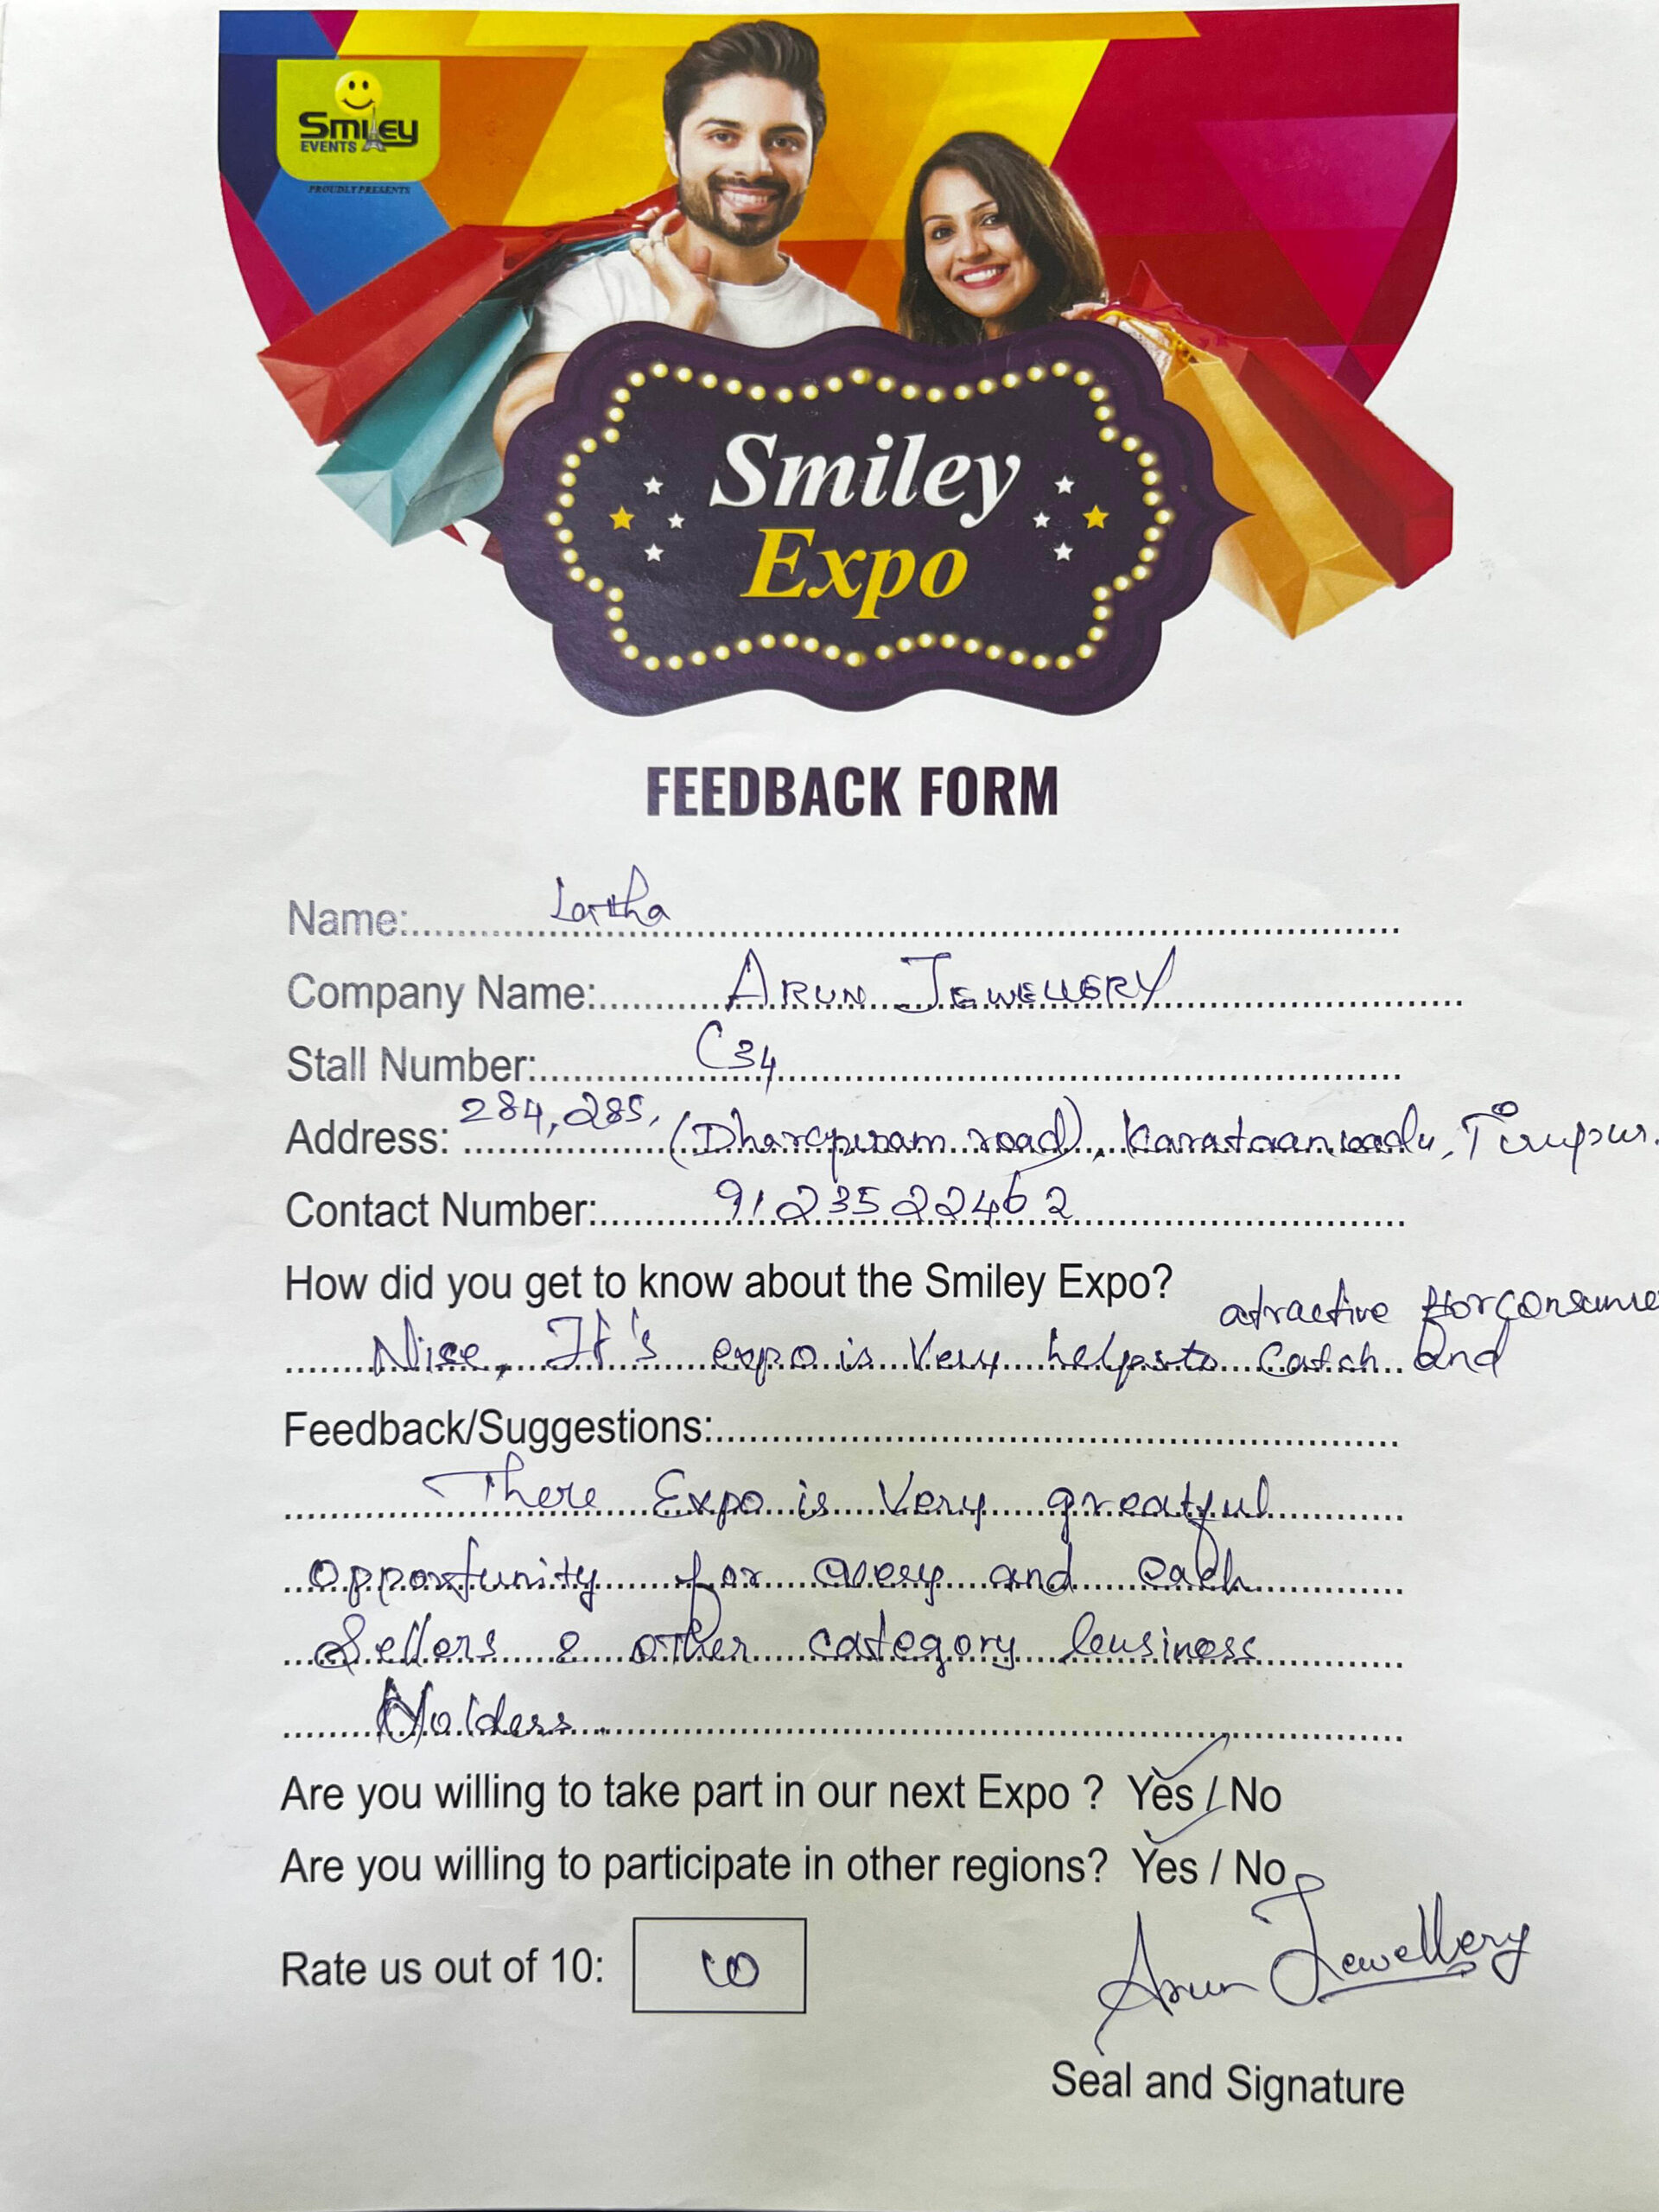 Smiley
EVENTS
PROUDLY PRESENTS
Smiley
Expo
FEEDBACK FORM
Name: Lartha
Company Name: ARUN JEWELLERY
Stall Number: C34
Address: 284, 285, (Dharapuram road), Karattaankadu, Tirupur.
Contact Number: 9123522462
How did you get to know about the Smiley Expo?
atractive for consume
Nise, It's expo is Very helps to Catch and
Feedback/Suggestions:
There Expo is Very greatful
opportunity for every and each
Sellers & other category business
Holders.
Are you willing to take part in our next Expo ? Yes / No
Are you willing to participate in other regions? Yes / No
Rate us out of 10: 10
Arun Jewellery
Seal and Signature